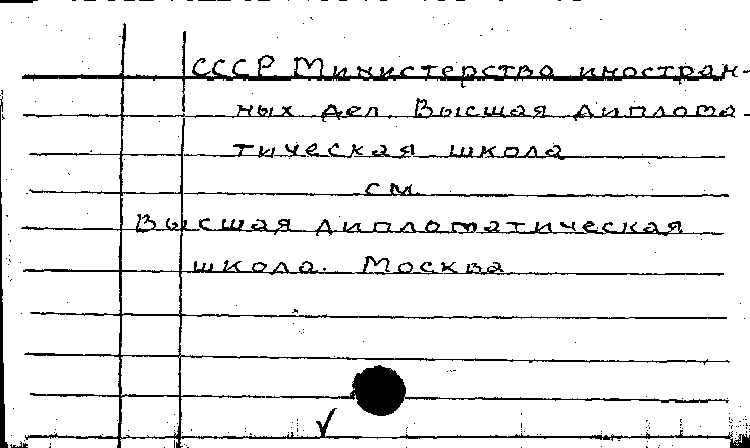 СССР. Министерство иностран-
ных дел. Высшая диплома-
тическая школа
см.
Высшая дипломатическая
школа. Москва